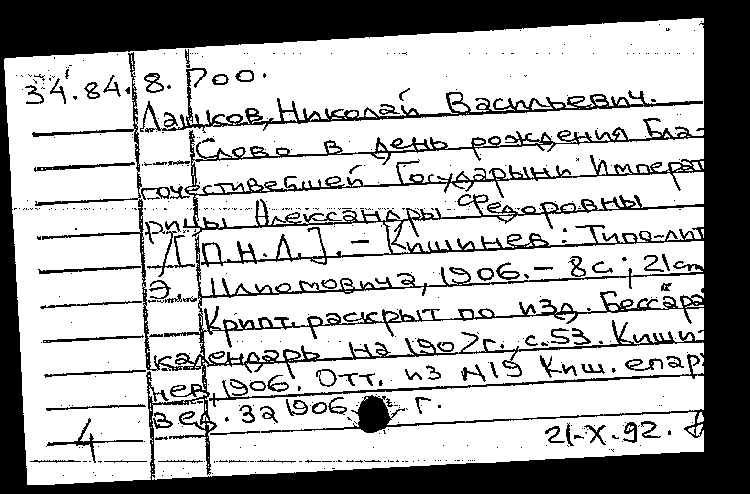 34.84.8.700.
Лашков, Николай Васильевич.
Слово в день рождения Бла-
гочестивейшей Государыни Императ
рицы Александры Федоровны
/[П.Н.Л.]. – Кишинев: Типо-лит
Э. Шлиомовича, 1906. – 8 с.; 21 см
Крипт. раскрыт по изд. Бессара
календарь на 1907 г., с. 53. Киши-
нев, 1906. Отт. из №19 Киш. епар
вед. за 1906 г.
4
21-X.92.